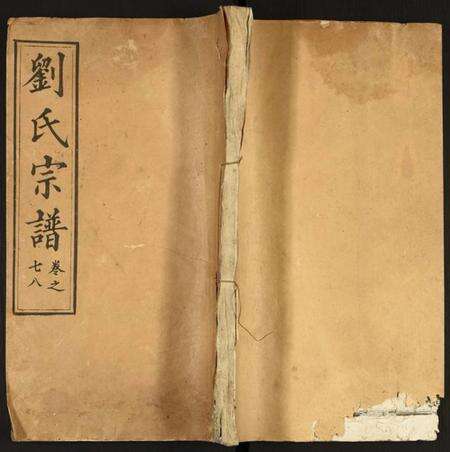 劉氏宗譜
卷之
七八